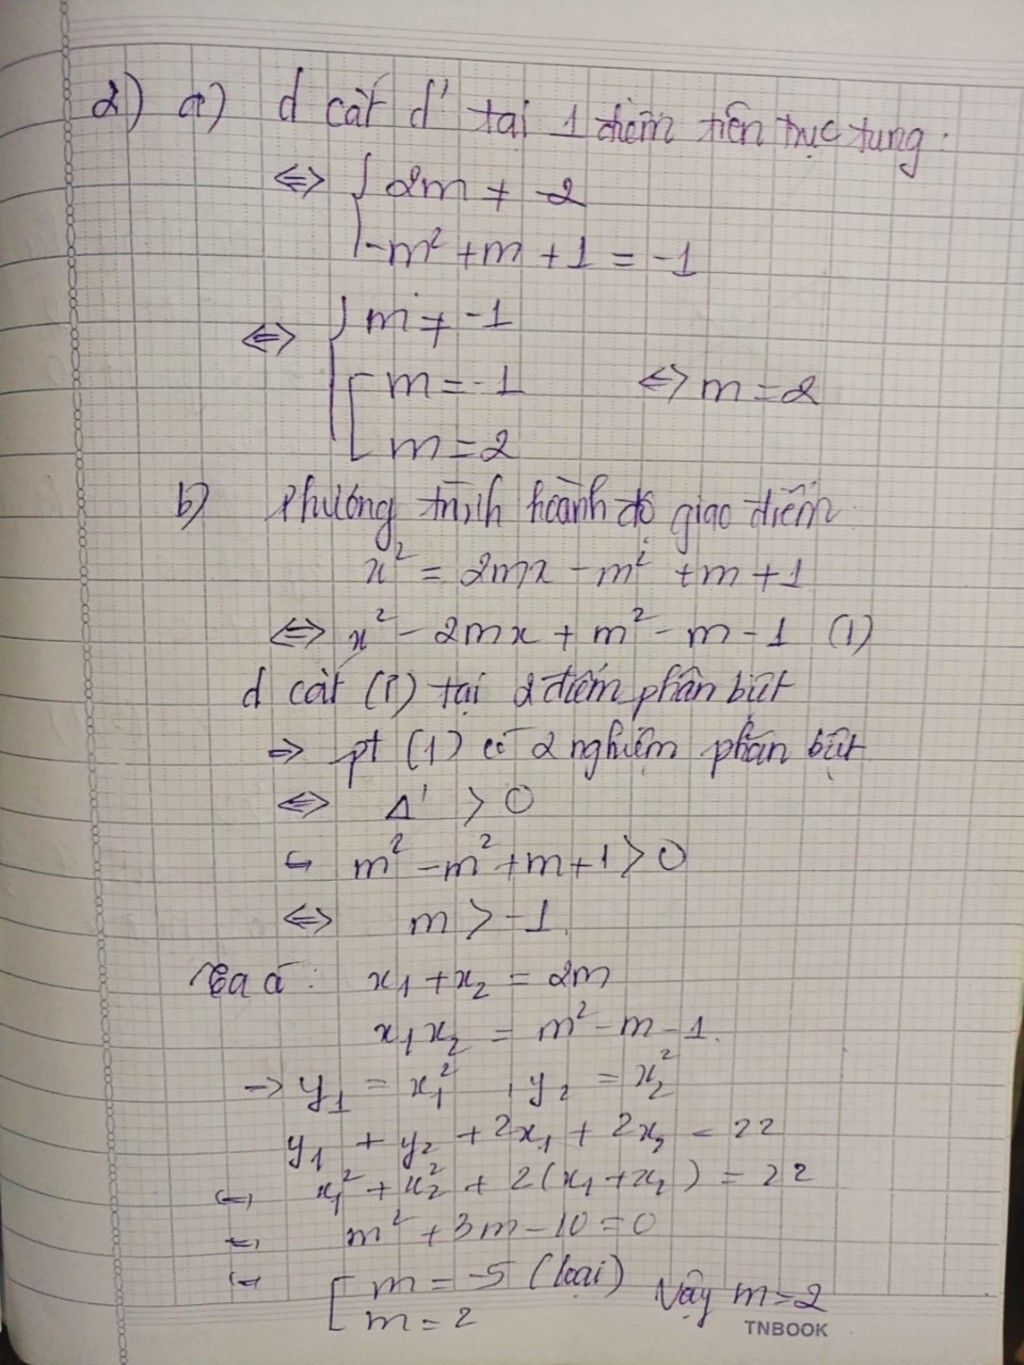 2) a) d cắt d' tại 1 điểm trên trục tung.
⇔ { 2m ≠ -2
-m² + m + 1 = -1
⇔ { m ≠ -1
[ m = -1 ⇔ m = 2
m = 2
b) Phương trình hoành độ giao điểm
x² = 2mx - m² + m + 1
⇔ x² - 2mx + m² - m - 1 (1)
d cắt (P) tại 2 điểm phân biệt
⇒ pt (1) có 2 nghiệm phân biệt
⇔ Δ' > 0
⇔ m² - m² + m + 1 > 0
⇔ m > -1.
Ta có: x₁ + x₂ = 2m
x₁x₂ = m² - m - 1.
→ y₁ = x₁² , y₂ = x₂²
y₁ + y₂ + 2x₁ + 2x₂ = 22
⇔ x₁² + x₂² + 2(x₁ + x₂) = 22
⇔ m² + 3m - 10 = 0
⇔ [ m = -5 (loại) Vậy m = 2
m = 2
TNBOOK